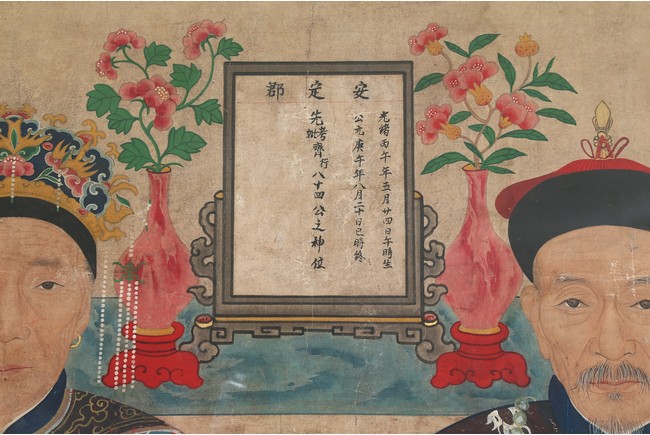 安定郡
光緒丙午年五月廿四日午時生
公元庚午年八月二十日巳時終
先考妣齊行八十四公之神位